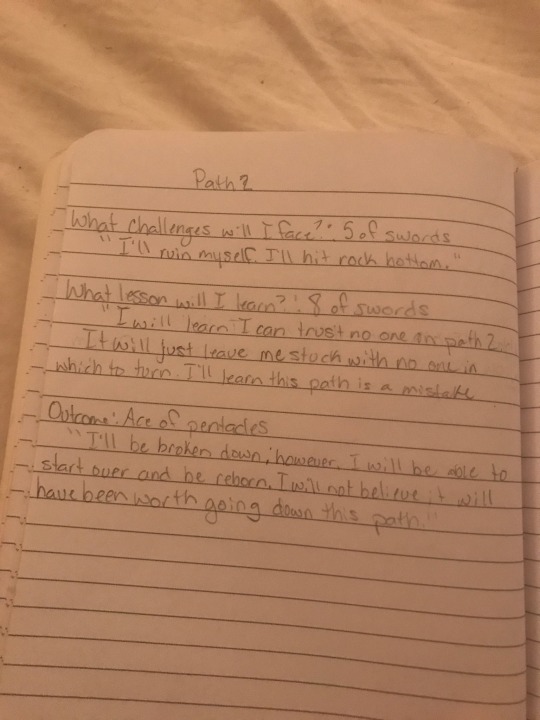 Path 2
What challenges will I face?: 5 of swords
"I'll ruin myself. I'll hit rock bottom."
What lesson will I learn?: 8 of swords
"I will learn I can trust no one on path 2.
It will just leave me stuck with no one in
which to turn. I'll learn this path is a mistake
Outcome: Ace of pentacles
"I'll be broken down; however, I will be able to
start over and be reborn. I will not believe it will
have been worth going down this path."